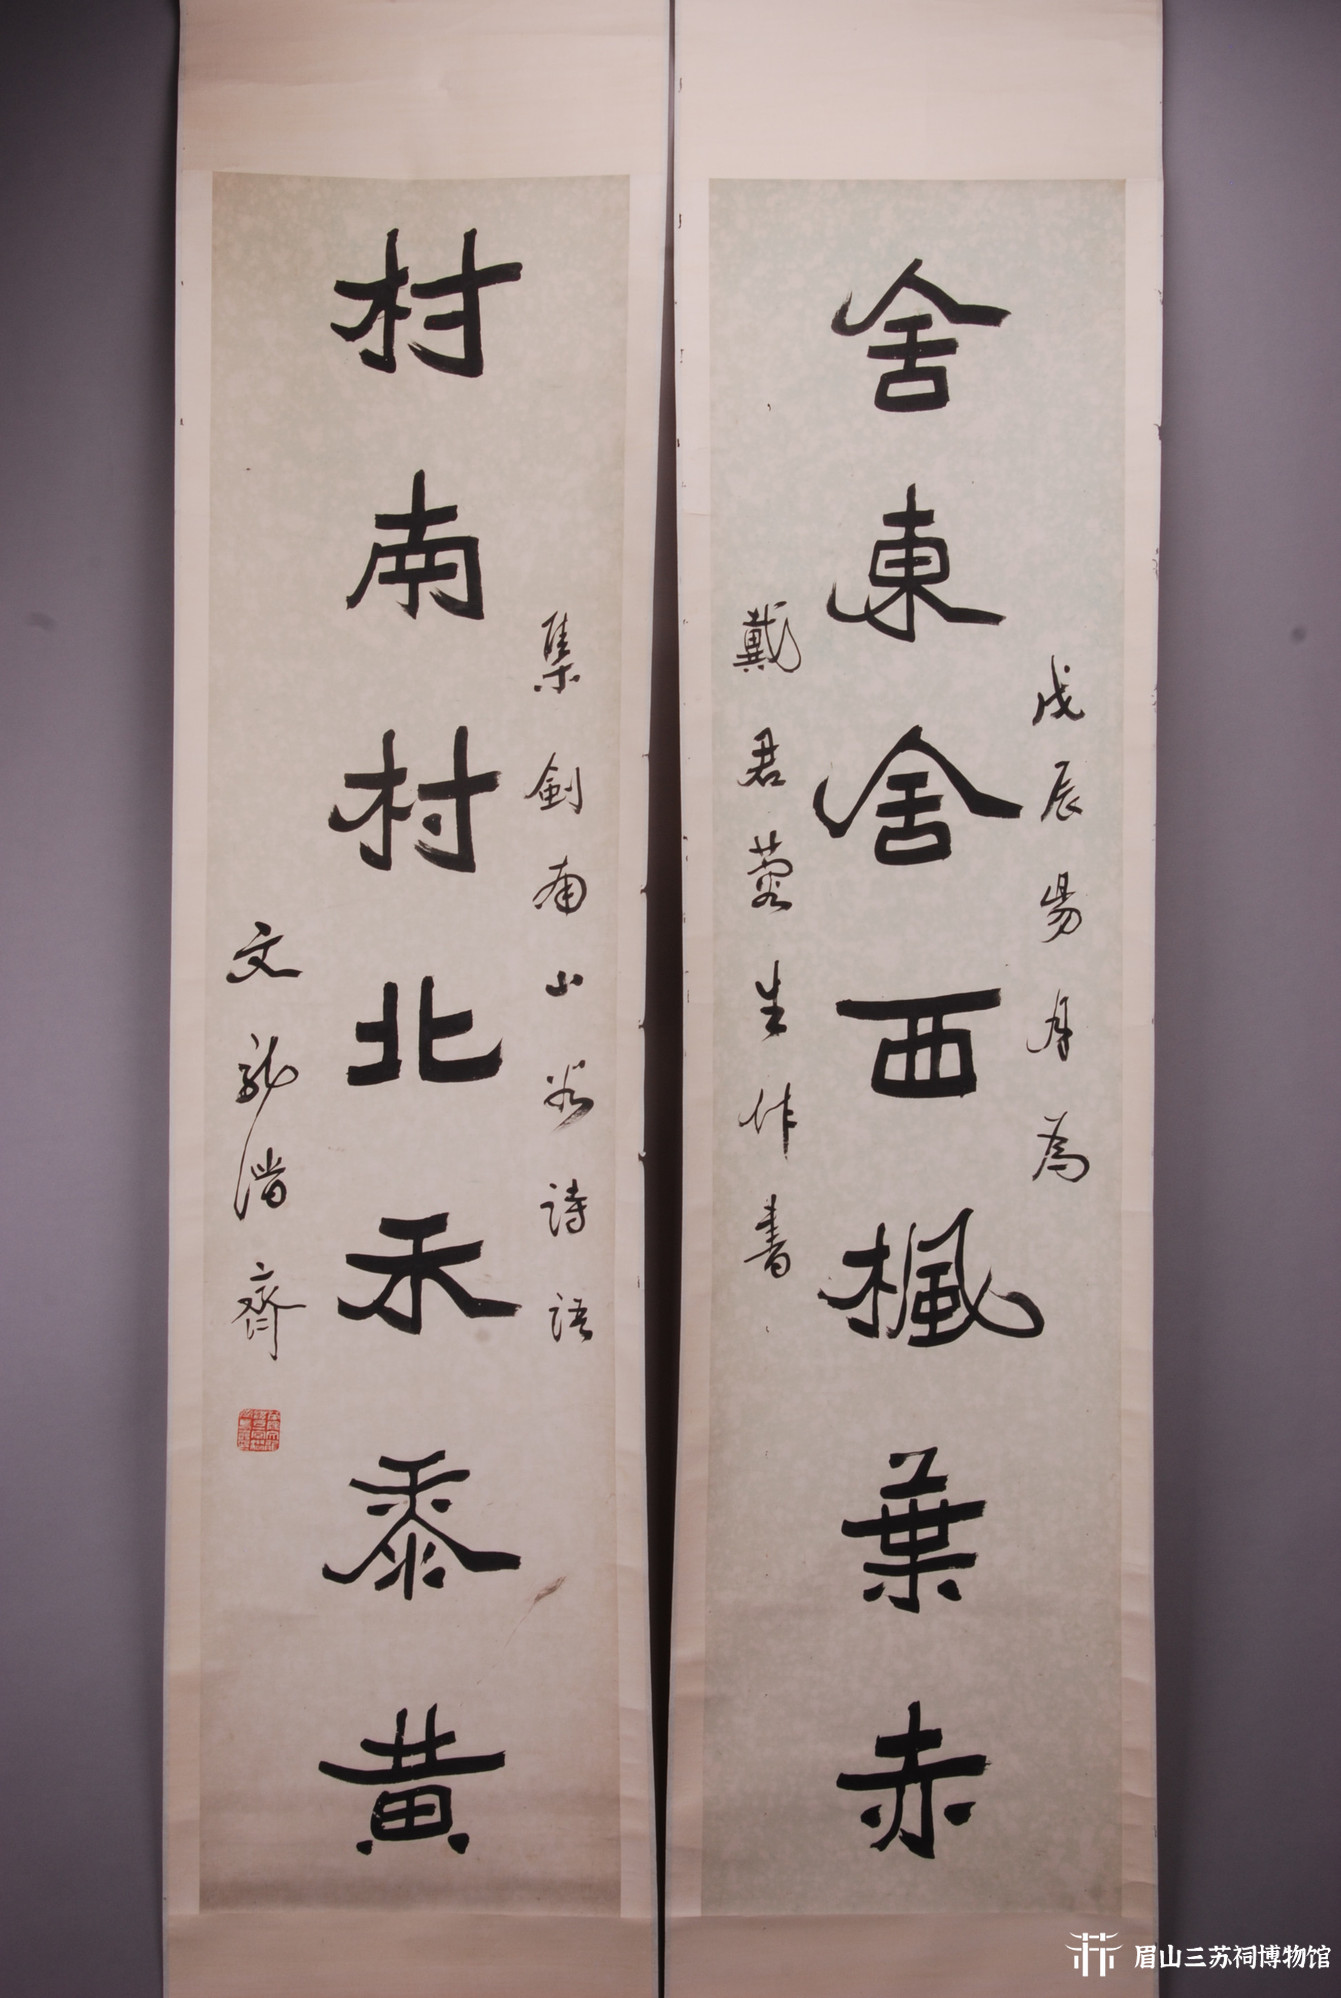 舍東舍西楓葉赤
戊辰易月為
戴君蓉生作書
村南村北禾黍黃
集劍南山谷詩語
文龍潛齊
眉山三苏祠博物馆